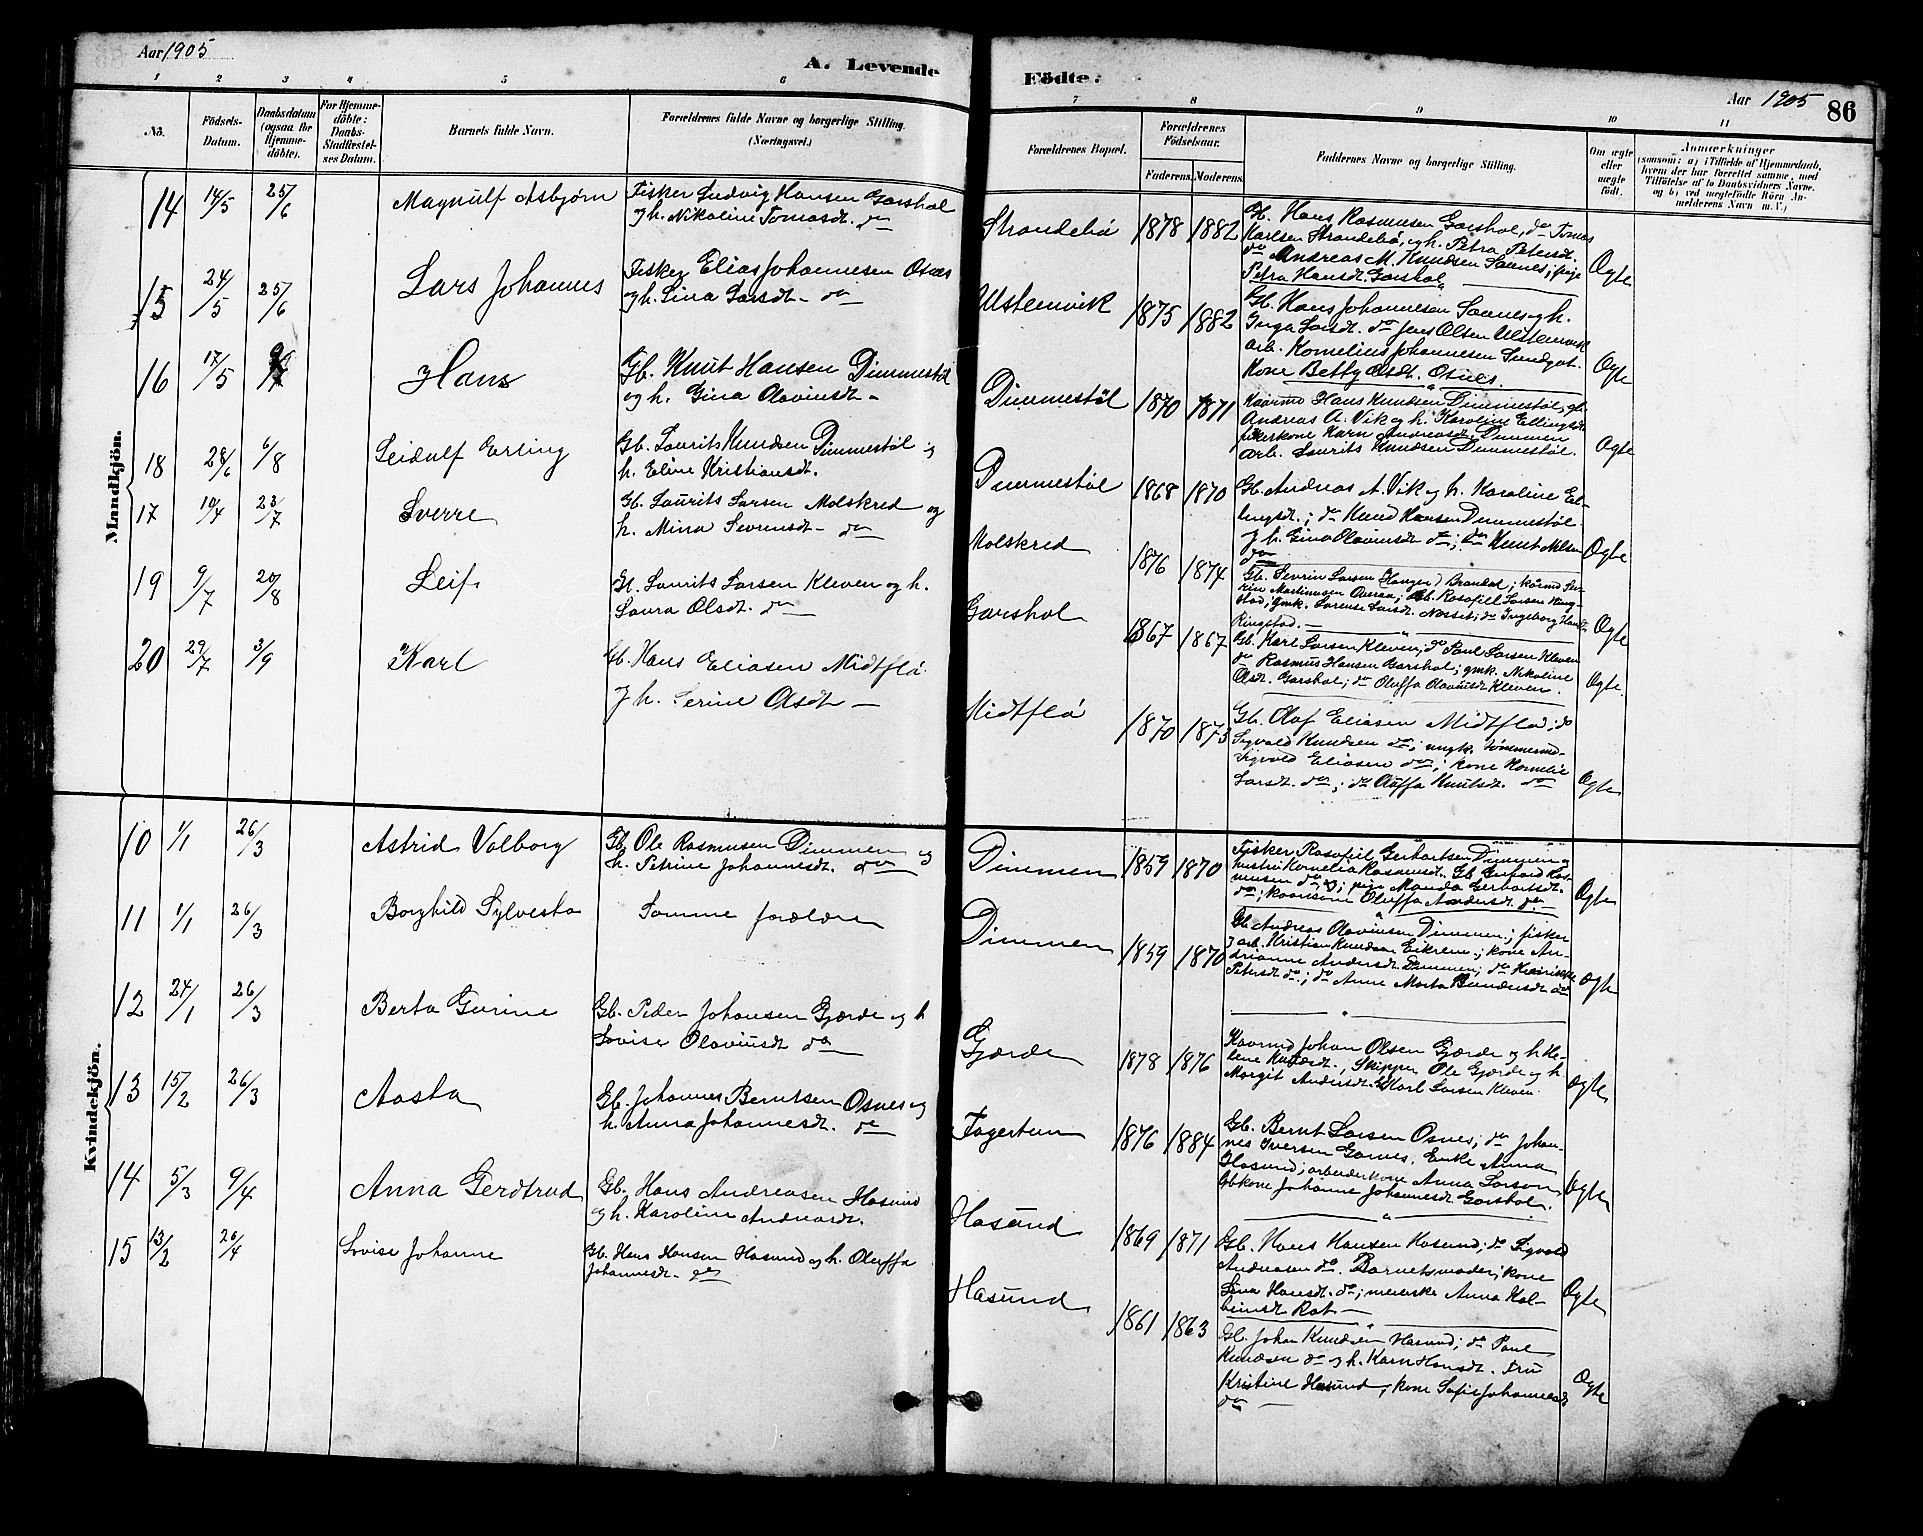 Aar 1905
A. Levende
Födte.
Aar 1905
86
1 2 3 4 5 6 7 8 9 10 11
No.
Födsels-
Datum.
Daabsdatum
(ogsaa for
Hjemme-
döbte).
For Hjemme-
döbte:
Daabs-
Stadfæstel-
ses Datum.
Barnets fulde Navn.
Forældrenes fulde Navne og borgerlige Stilling.
(Næringsvei.)
Forældrenes Bopæl.
Forældrenes
Födselsaar.
Faderens. Moderens.
Faddernes Navne og borgerlige Stilling.
Om ægte
eller
uægte
født.
Anmærkninger
(saasom: a) i Tilfælde af Hjemmedaab,
hvem der har forrettet samme, med
Tilföielse af to Daabsvidners Navne.
og b) ved uægtefödte Börn An-
melderens Navn m. V.)
Mandkjön.
14 14/5 25/6 Magnulf Asbjørn
Fisker Ludvig Hansen Garshol
og h. Nikoline Tomasdt. do
Strandebø 1878 1882
Gb. Hans Rasmusen Garshol, do Tomas
Karlsen Strandebø, og h. Petra Petersdt.
do Andreas M. Knudsen Sannes; pige
Petra Hansdt. Garshol
Ægte
15 24/5 25/6 Lars Johannes
Fisker Elias Johannesen Osnes
og h. Lina Larsdt. do
Ulstenvik 1875 1882
Gb. Hans Johannesen Sannes og h.
Inga Larsdt. do Jens Olsen Ulstenvik
arb. Kornelius Johannesen Sundgot.
Kone Betty Olsdt. Osnes.
Ægte
16 17/5 Hans
Gb. Knut Hansen Dimmestøl
og h. Gina Olavinsdt.
Dimmestøl 1870 1871
Kaarmd Hans Knudsen Dimmestøl, gb.
Andreas A. Vik og h. Karoline Ellingsdt
fiskerkone Karn Andreasdt. Dimmen
arb. Laurits Knudsen Dimmestøl.
Ægte
18 28/6 6/8 Leidulf Erling
Gb. Laurits Knudsen Dimmestøl og
h. Eline Kristiansdt.
Dimmestøl 1868 1870
Gb. Andreas A. Vik og h. Karoline El-
lingsdt.; do Knud Hansen Dimmestøl
og h. Gina Olavinsdt do; do Knut Nilsen
do
Ægte
17 10/4 23/7 Sverre
Gb. Laurits Larsen Molskred og
h. Mina Sevrensdt. do
Molskred 1876 1874
Gb. Sevrin Larsen (Hauger) Brandal; kaarmd
Martinusen Overaa; Gb. Rosofill Larsen Ring-
stad; gmk. Larense Larsdt. Nesset; do Ingeborg Hansdt.
Ringstad.
Ægte
19 9/7 20/8 Leif
Gb. Laurits Larsen Kleven og h.
Laura Olsdt. do
Garshol 1867 1867
Gb. Karl Larsen Kleven, do Paul Larsen Kleven
do Rasmus Hansen Garshol; gmk. Nikoline
Olsdt. Garshol; do Oluffa Olavinsdt Kleven.
Ægte.
20 29/7 3/9 Karl
Gb. Hans Eliasen Midtflø
og h. Serine Olsdt
Midtflø 1870 1873
Gb. Olaf Eliasen Midtflø; do
Sigvald Knudsen do; ungk. tømmermd
Sigvald Eliasen do; kone Kornelie
Larsdt. do; do Oluffa Knutsdt. do
Ægte
Kvindekjön.
10 1/1 26/3 Astrid Valborg
Gb. Ole Rasmusen Dimmen og
h. Petrine Johannesdt. do
Dimmen 1859 1870
Fisker Rosofill Gerhartsen Dimmen og
hustru Kornelia Rasmusdt. Gb. Ras-
musen do; pige Manda Gerhartsdt.
do; kaarkone Oluffa Andersdt. do
Ægte
11 1/1 26/3 Borghild Sylvesta
Samme forældre
Dimmen 1859 1870
Gb. Andreas Olavinsen Dimmen; fisker
og arb. Kristian Knudsen Eikrem; kone An-
drianne Andersdt Dimmen; do Henrikke
Petersdt do; do Anne Marta do
Ægte
12 24/1 26/3 Berta Gurine
Gb. Peder Johansen Gjerde og h
Lovise Olavinsdt do
Gjerde 1878 1876
Kaarmd Johan Olsen Gjerde og h He-
lene Knudsdt., Skipper Ole Gjerde og h
Margit Andersdt. Karl Larsen Kleven
Ægte
13 15/2 26/3 Aasta
Gb. Johannes Berntsen Osnes og
h. Anna Johannesdt. do
Fagertun 1876 1884
Gb. Bernt Larsen Osnes; do Johan-
nes Iversen Garnes. Enke Anna
Hasund; arbeiderkone Anna Larsen,
Gbkone Johanne Johannesdt Garshol.
Ægte
14 5/3 9/4 Anna Gerdtrud
Gb. Hans Andreasen Hasund
og h. Karoline Andreasdt.
Hasund 1869 1871
Gb. Hans Hansen Hasund; do Sigvald
Andreasen do. Barnets moder; kone
Lina Hansdt. do; meierske Anna Kol-
beinsdt Rot
Ægte
15 13/2 26/4 Lovise Johanne
Gb. Hans Hansen Hasund og h. Oluffa
Johannesdt. do
Hasund 1861 1863
Gb. Johan Knudsen Hasund; do Paul
Knudsen do og h. Karn Hansdt. Fru
Kristine Hasund, kone Sofie Johannesdt
do
Ægte